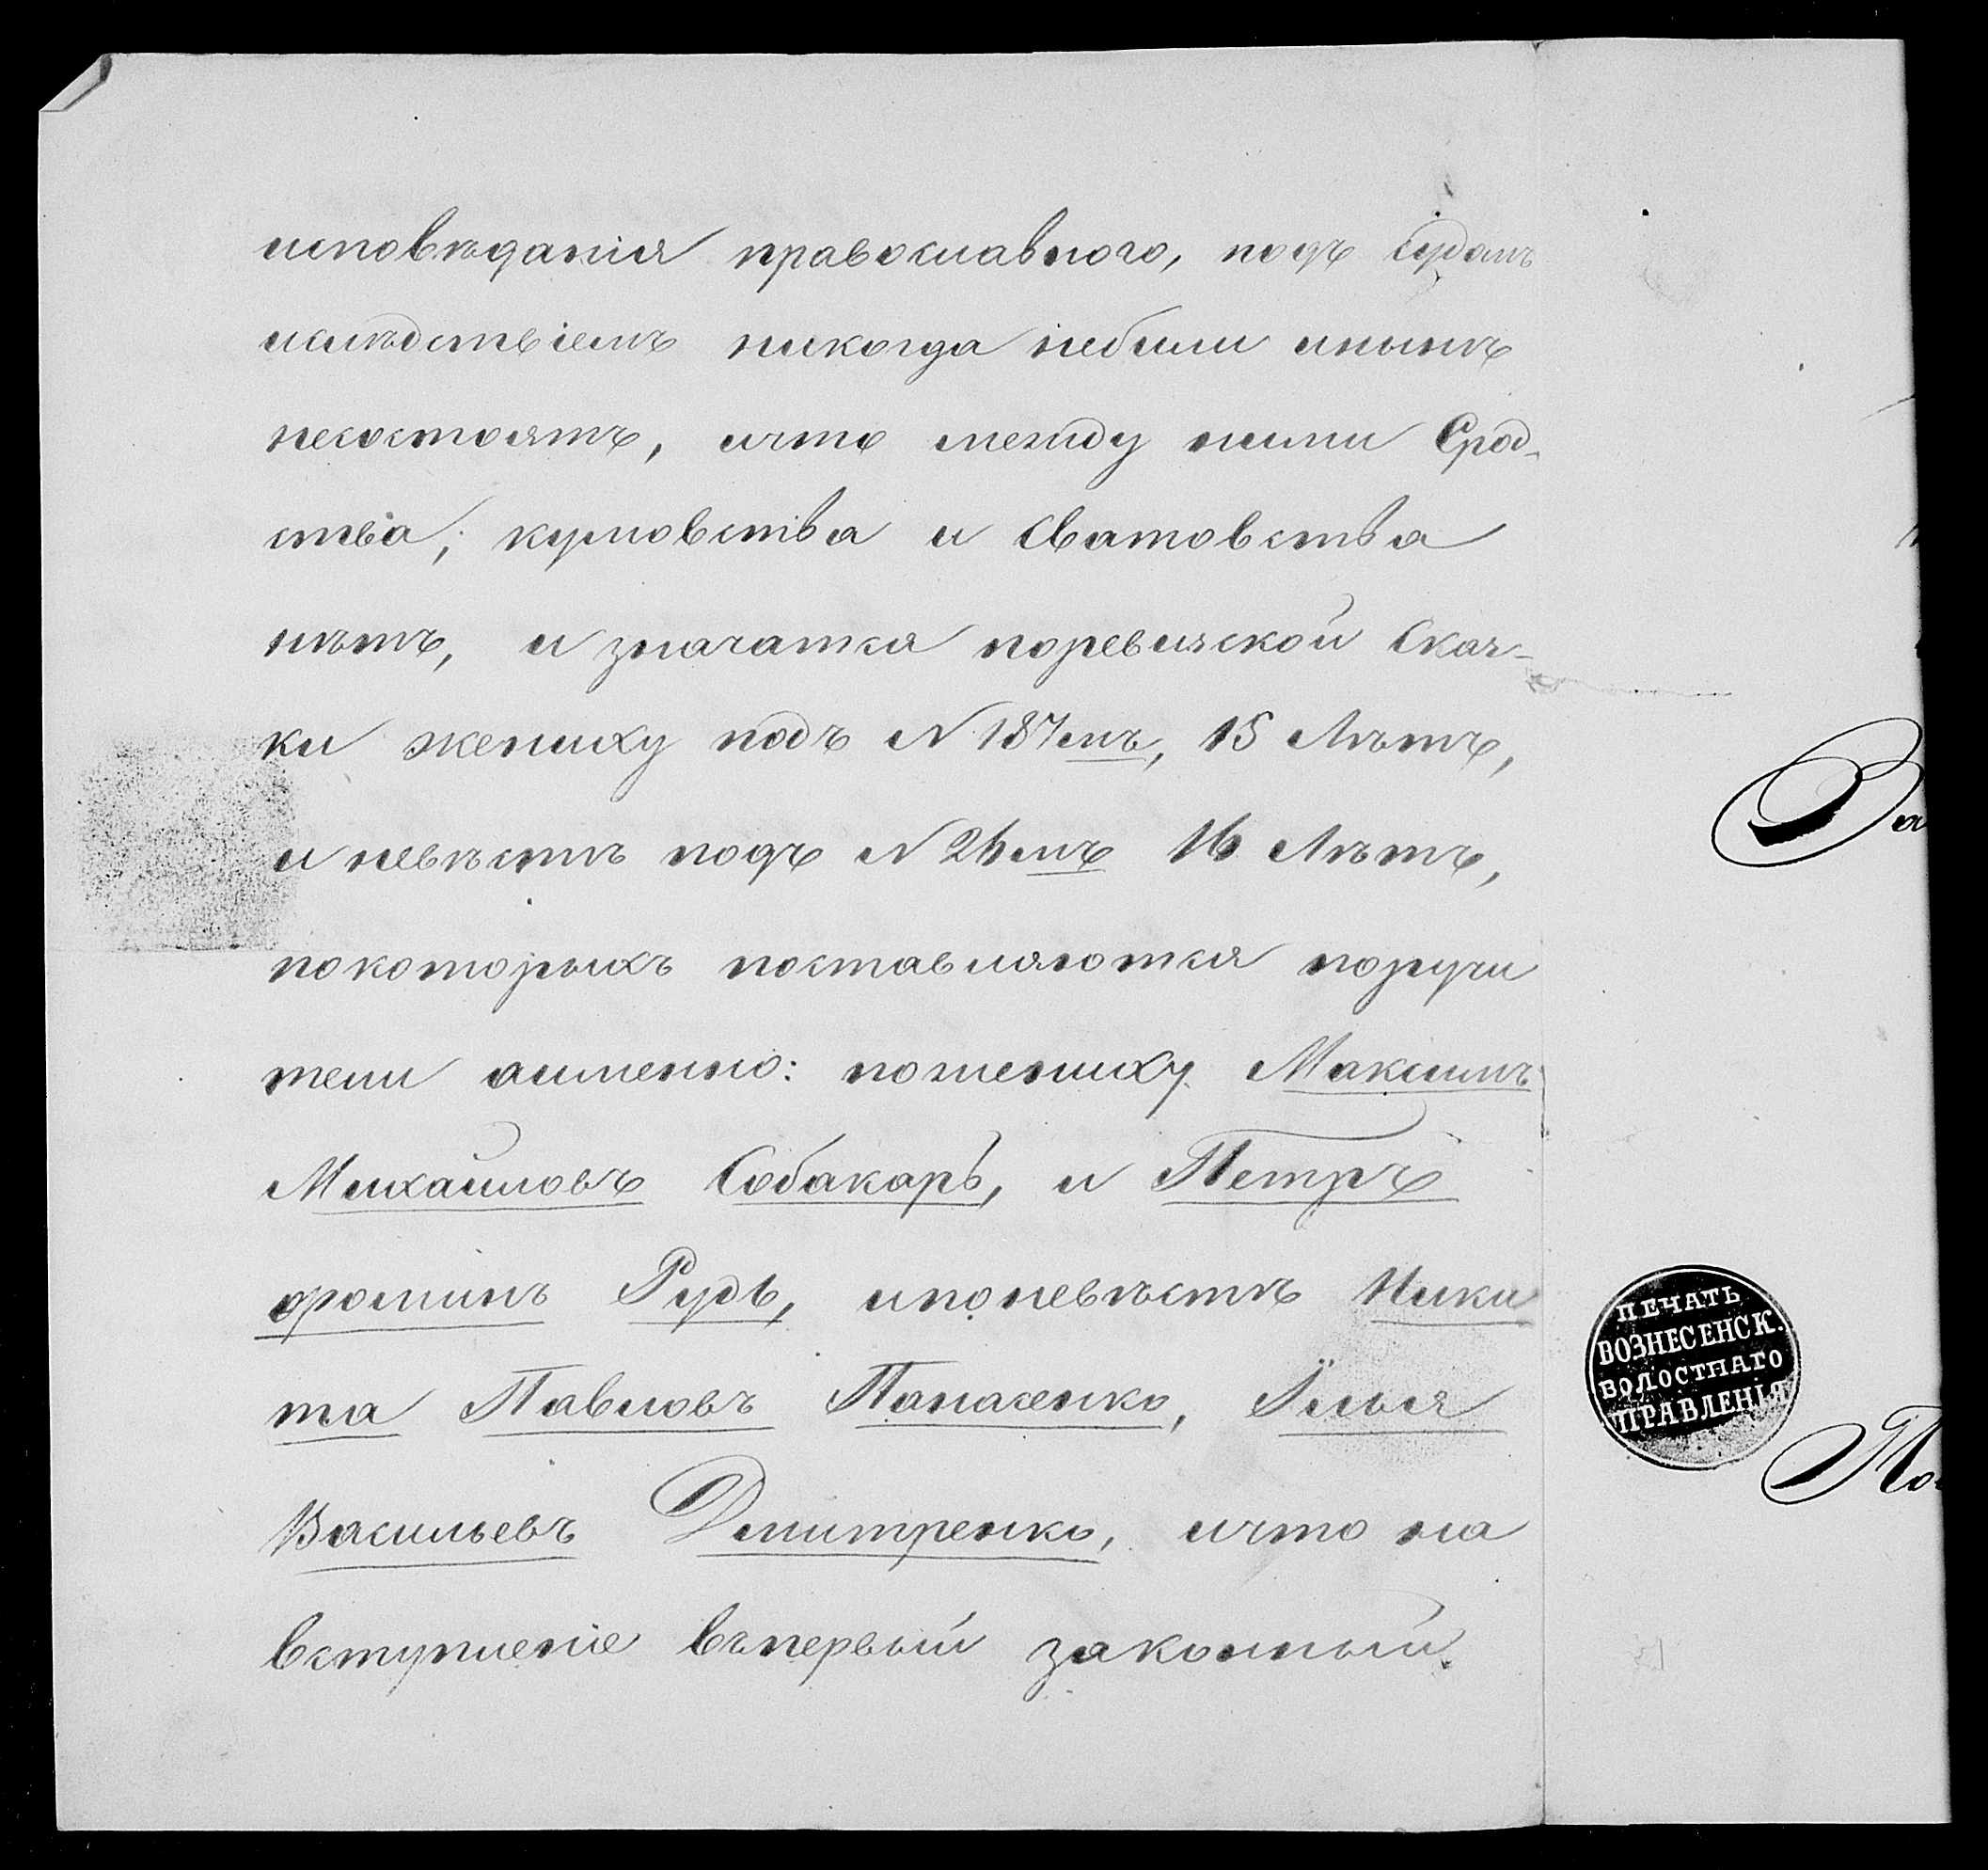 исповѣданія православнаго, подъ судомъ
ислѣдствіемъ никогда небыли инынѣ
несостоятъ, ичто между ними Срод-
ства, кумовства и Сватовства
нѣтъ, и значатся поревизской Сказ-
ки жениху подъ N 187мъ, 15 Лѣтъ,
и невѣстѣ подъ N 24мъ 16 Лѣтъ,
покоторыхъ поставляются поручи
тели аименно: пожениху Максимъ
Михайловъ Собакарь, и Петръ
Фоминъ Рудь, ипоневѣстѣ Ники
та Павловъ Панасенко, Илья
Васильевъ Дмитренко, ичто на
вступленіе въпервый законный
ПЕЧАТЬ
ВОЗНЕСЕНСК.
ВОЛОСТНАГО
ПРАВЛЕНІЯ